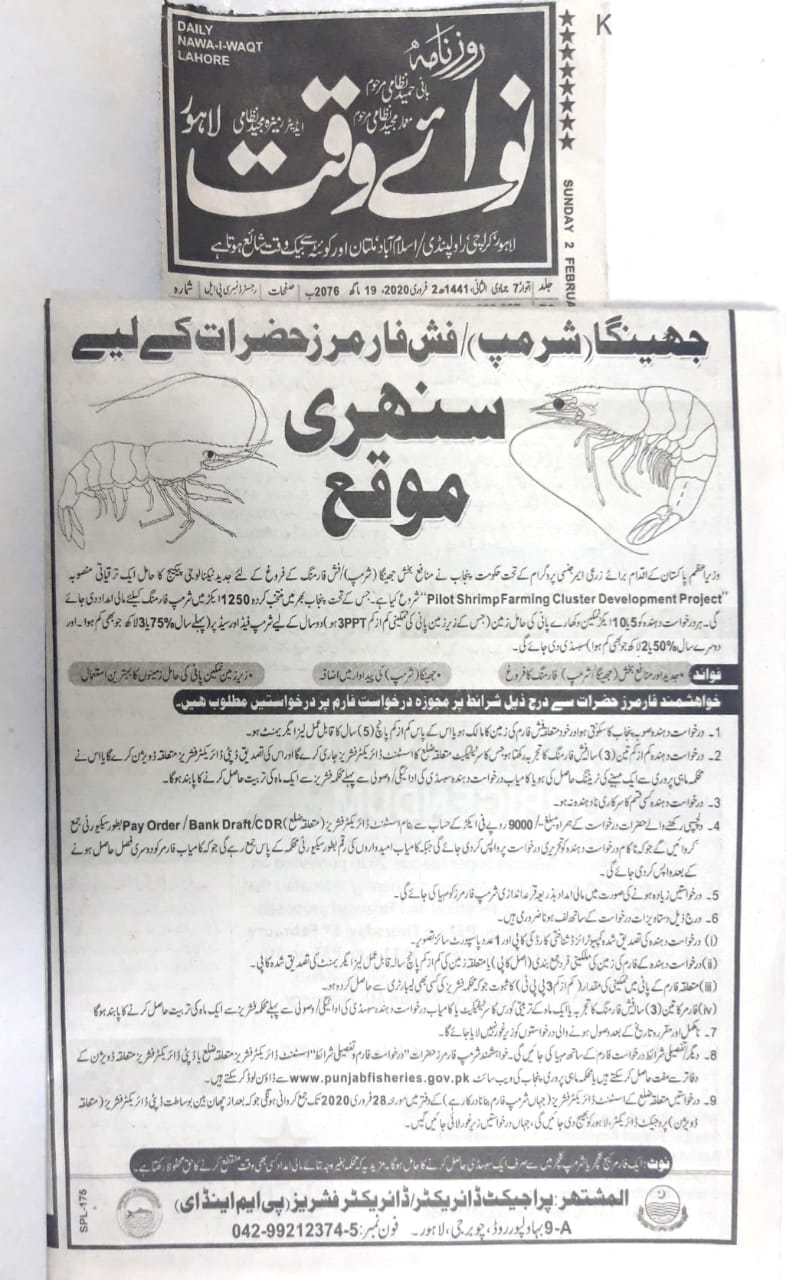 DAILY
NAWA-I-WAQT
LAHORE
K
روزنامہ
نوائے وقت
لاہور
بانی حمید نظامی مرحوم
معمار مجید نظامی مرحوم
ایڈیٹر رمیزہ مجید نظامی
لاہور، کراچی، راولپنڈی/اسلام آباد، ملتان اور کوئٹہ سے بیک وقت شائع ہوتا ہے
SUNDAY 2 FEBRUA
جلد اتوار 7 جمادی الثانی، 1441ھ 2 فروری 2020ء 19 ماگھ 2076ب صفحات رجسٹرڈ نمبر سی پی ایل شمارہ
جھینگا (شرمپ)/فش فارمرز حضرات کے لیے
سنہری
موقع
وزیراعظم پاکستان کے اقدام برائے زرعی ایمرجنسی پروگرام کے تحت حکومت پنجاب نے منافع بخش جھینگا (شرمپ)/فش فارمنگ کے فروغ کے لئے جدید ٹیکنالوجی پیکیج کا حامل ایک ترقیاتی منصوبہ
"Pilot Shrimp Farming Cluster Development Project" شروع کیا ہے۔ جس کے تحت پنجاب بھر میں منتخب کردہ 1250 ایکڑ میں شرمپ فارمنگ کیلئے مالی امداد دی جائے
گی۔ ہر درخواست دہندہ کو 5 یا 10 ایکڑ نمکین و کھارے پانی کی حامل زمین (جس کے زیرزمین پانی کی نمکینی کم از کم 3PPT ہو) دو سال کے لیے شرمپ فیڈ اور سیڈ پر (پہلے سال 75% یا 3 لاکھ جو بھی کم ہوا۔ اور
دوسرے سال 50% یا 2 لاکھ جو بھی کم ہوا) سبسڈی دی جائے گی۔
فوائد • جدید اور منافع بخش (جھینگا/شرمپ) فارمنگ کا فروغ • جھینگا (شرمپ) کی پیداوار میں اضافہ • زیرزمین نمکین پانی کی حامل زمینوں کا بہترین استعمال
خواہشمند فارمرز حضرات سے درج ذیل شرائط پر مجوزہ درخواست فارم پر درخواستیں مطلوب ھیں۔
1۔ درخواست دہندہ صوبہ پنجاب کا سکونتی ہو اور خود متعلقہ فش فارم کی زمین کا مالک ہو یا اس کے پاس کم از کم پانچ (5) سال کا قابل عمل لیز ایگریمنٹ ہو۔
2۔ درخواست دہندہ کم از کم تین (3) سالہ فش فارمنگ کا تجربہ رکھتا ہو جس کا سرٹیفکیٹ متعلقہ ضلع کا اسسٹنٹ ڈائریکٹر فشریز جاری کرے گا اور اس کی تصدیق ڈپٹی ڈائریکٹر فشریز متعلقہ ڈویژن کرے گا یا اس نے
محکمہ ماہی پروری سے ایک مہینے کی ٹریننگ حاصل کی ہو یا کامیاب درخواست دہندہ سبسڈی کی ادائیگی/وصولی سے پہلے محکمہ فشریز سے ایک ماہ کی تربیت حاصل کرنے کا پابند ہوگا۔
3۔ درخواست دہندہ کسی قسم کا سرکاری نادہندہ نہ ہو۔
4۔ دلچسپی رکھنے والے حضرات درخواست کے ہمراہ مبلغ -/9000 روپے فی ایکڑ کے حساب سے بنام اسسٹنٹ ڈائریکٹر فشریز (متعلقہ ضلع) Pay Order / Bank Draft/CDR بطور سیکیورٹی جمع
کروائیں گے جو کہ ناکام درخواست دہندہ کو تحریری درخواست پر واپس کردی جائے گی جبکہ کامیاب امیدواروں کی رقم بطور سیکیورٹی محکمہ کے پاس جمع رہے گی جو کہ کامیاب فارمر کو دوسری فصل حاصل ہونے
کے بعد واپس کر دی جائے گی۔
5۔ درخواستیں زیادہ ہونے کی صورت میں مالی امداد بذریعہ قرعہ اندازی شرمپ فارمرز کو مہیا کی جائے گی۔
6۔ درج ذیل دستاویزات درخواست کے ساتھ لف ہونا ضروری ہیں۔
(i) درخواست دہندہ کی تصدیق شدہ کمپیوٹرائزڈ شناختی کارڈ کی کاپی اور 1 عدد پاسپورٹ سائز تصویر۔
(ii) درخواست دہندہ کے فارم کی زمین کی ملکیتی فرد جمع بندی (اصل کاپی) یا متعلقہ زمین کی کم از کم پانچ سالہ قابل عمل لیز ایگریمنٹ کی تصدیق شدہ کاپی۔
(iii) متعلقہ فارم کے پانی میں نمکینی کی مقدار (کم از کم 3 پی پی ٹی) کا ثبوت جو کہ محکمہ فشریز کی کسی بھی لیبارٹری سے حاصل کردہ ہو۔
(iv) فارمر کا تین (3) سالہ فش فارمنگ کا تجربہ یا ایک ماہ کے تربیتی کورس کا سرٹیفکیٹ یا کامیاب درخواست دہندہ سبسڈی کی ادائیگی/وصولی سے پہلے محکمہ فشریز سے ایک ماہ کی تربیت حاصل کرنے کا پابند ہوگا
7۔ نامکمل اور مقررہ تاریخ کے بعد وصول ہونے والی درخواستوں کو زیر غور نہیں لایا جائے گا۔
8۔ دیگر تفصیلی شرائط درخواست فارم کے ساتھ مہیا کی جائیں گی۔ خواہشمند شرمپ فارمرز حضرات "درخواست فارم و تفصیلی شرائط" اسسٹنٹ ڈائریکٹر فشریز متعلقہ ضلع یا ڈپٹی ڈائریکٹر فشریز متعلقہ ڈویژن کے
دفاتر سے مفت حاصل کرسکتے ہیں یا محکمہ ماہی پروری پنجاب کی ویب سائٹ www.punjabfisheries.gov.pk سے ڈاؤن لوڈ کر سکتے ہیں۔
9۔ درخواستیں متعلقہ ضلع کے اسسٹنٹ ڈائریکٹر فشریز (جہاں شرمپ فارم بنانا درکار ہے) کے دفتر میں مورخہ 28 فروری 2020 تک جمع کروانی ہونگی جو کہ بعد از چھان بین بوساطت ڈپٹی ڈائریکٹر فشریز (متعلقہ
ڈویژن) پروجیکٹ ڈائریکٹر، لاہور کو بھیج دی جائیں گی، جہاں درخواستیں زیر غور لائی جائیں گیں۔
نوٹ: ایک فارمر کیج کلچر یا شرمپ کلچر میں سے صرف ایک سبسڈی حاصل کرنے کا حامل ہوگا۔ مزید یہ کہ محکمہ بغیر وجہ بتائے مالی امداد کسی بھی وقت منقطع کرنے کا حق محفوظ رکھتا ہے۔
المشتھر: پراجیکٹ ڈائریکٹر/ڈائریکٹر فشریز (پی ایم اینڈ ای)
9-A بہاولپور روڈ، چوبرجی، لاہور۔ فون نمبر: 042-99212374-5
SPL-175